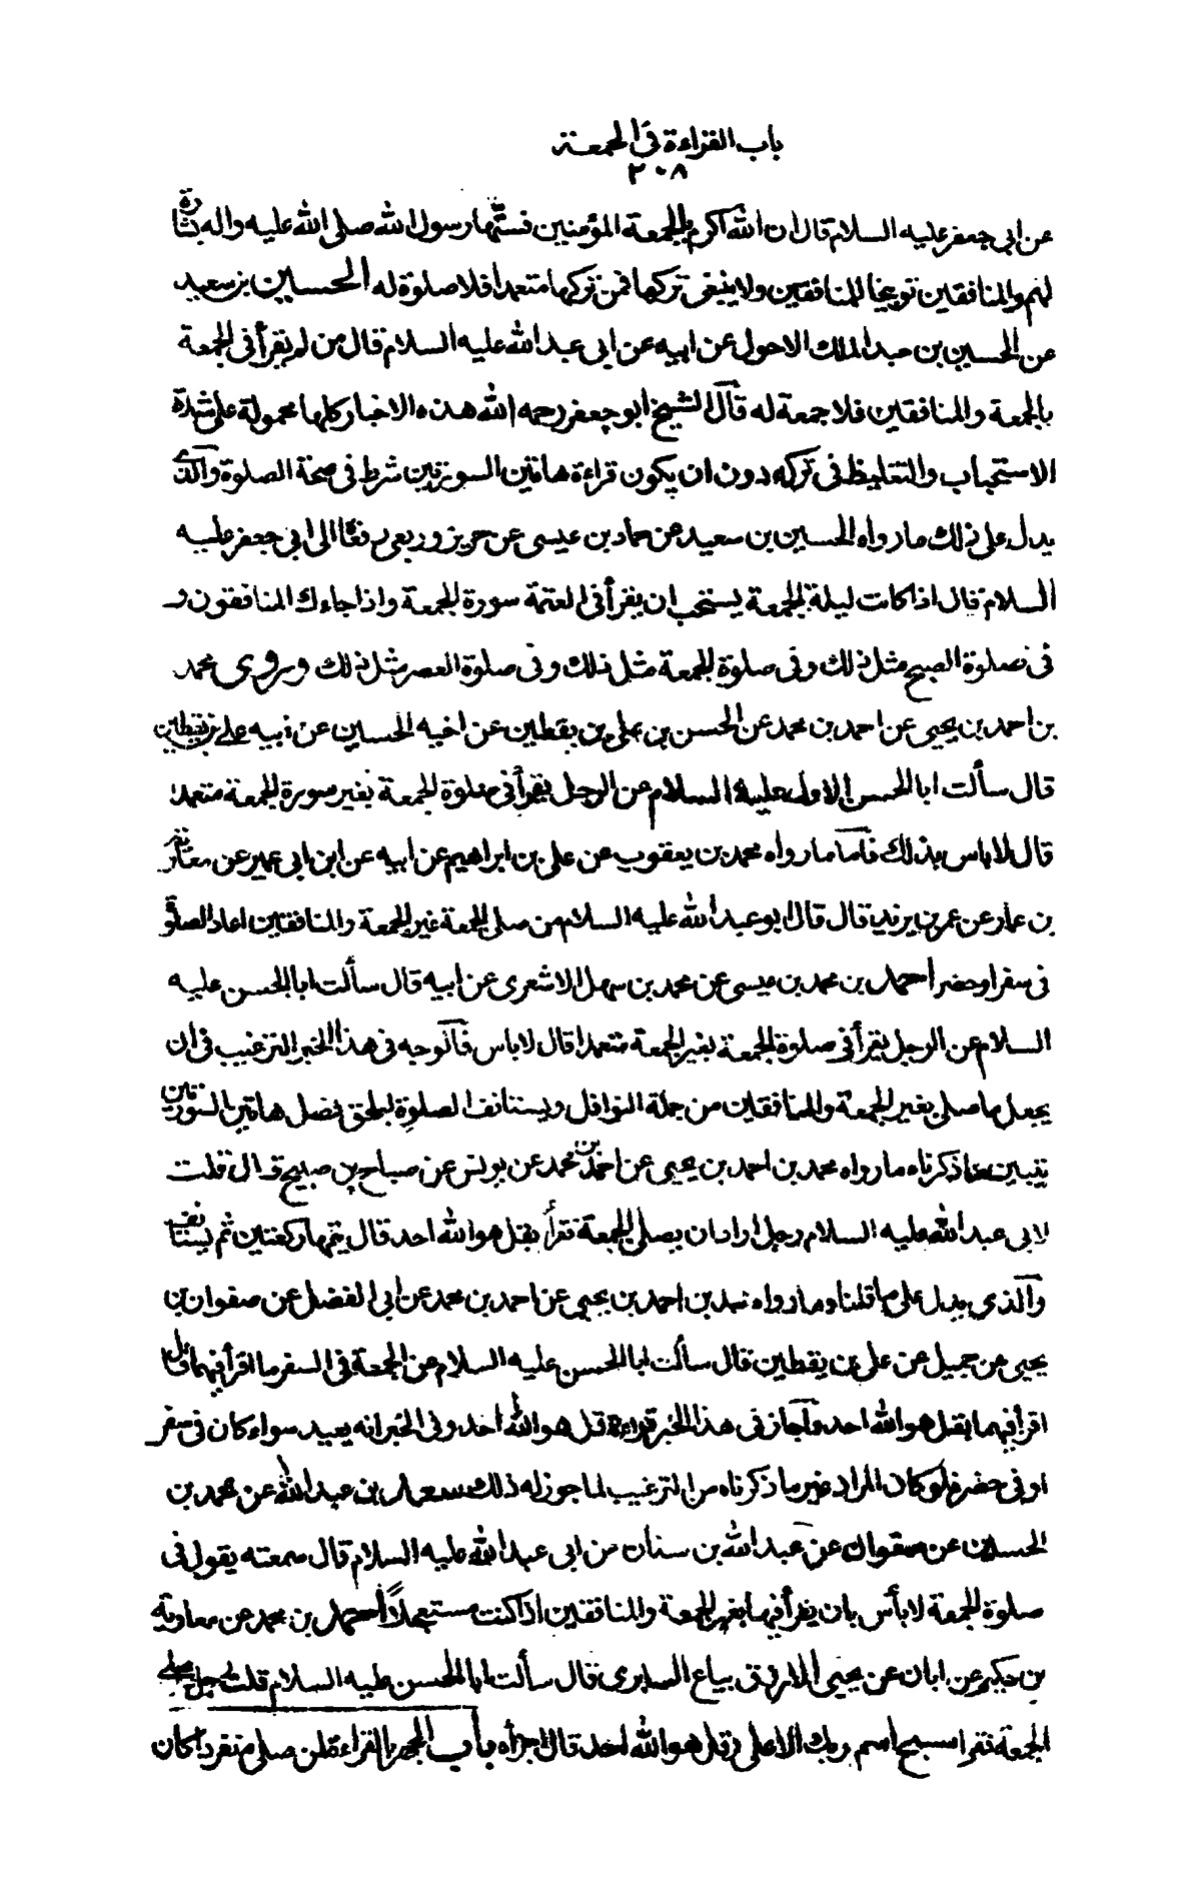 باب القراءة فی الجمعة
٢٠٨
عن ابی جعفر علیه السلام قال ان الله اکرم بالجمعة المؤمنین فسنّها رسول الله صلی الله علیه واله بشارة
لهم والمنافقین توبیخا للمنافقین ولا ینبغی ترکها فمن ترکها متعمدا فلا صلوة له الحسین بن سعید
عن الحسین بن عبد الملک الاحول عن ابیه عن ابی عبد الله علیه السلام قال من لم یقرأ فی الجمعة
بالجمعة والمنافقین فلا جمعة له قال الشیخ ابو جعفر رحمه الله هذه الاخبار کلها محمولة علی شدة
الاستحباب والتغلیظ فی ترکه دون ان یکون قراءة هاتین السورتین شرط فی صحة الصلوة والذی
یدل علی ذلک ما رواه الحسین بن سعید عن حماد بن عیسی عن حریز وربعی رفعاه الی ابی جعفر علیه
السلام قال اذا کانت لیلة الجمعة یستحب ان یقرأ فی العتمة سورة الجمعة واذا جاءك المنافقون و
فی صلوة الصبح مثل ذلك وفی صلوة الجمعة مثل ذلك وفی صلوة العصر مثل ذلك وروی محمد
بن احمد بن یحیی عن احمد بن محمد عن الحسن بن علی بن یقطین عن اخیه الحسین عن ابیه علی بن یقطین
قال سألت ابا الحسن الاول علیه السلام عن الرجل یقرأ فی صلوة الجمعة بغیر سورة الجمعة متعمدا
قال لا باس بذلك فاما ما رواه محمد بن یعقوب عن علی بن ابراهیم عن ابیه عن ابن ابی عمیر عن معاویة
بن عمار عن عمر بن یزید قال قال ابو عبد الله علیه السلام من صلی الجمعة بغیر الجمعة والمنافقین اعاد الصلوة
فی سفر او حضر احمد بن محمد بن عیسی عن محمد بن سهل الاشعری عن ابیه قال سألت ابا الحسن علیه
السلام عن الرجل یقرأ فی صلوة الجمعة بغیر الجمعة متعمدا قال لا باس فالوجه فی هذا الخبر الترغیب فی ان
یجعل ما صلی بغیر الجمعة والمنافقین من جملة النوافل ویستانف الصلوة لیلحق فضل هاتین السورتین
یبین ما ذکرناه ما رواه محمد بن احمد بن یحیی عن احمد بن محمد عن یونس عن صباح بن صبیح قال قلت
لابی عبد الله علیه السلام رجل اراد ان یصلی الجمعة فقرأ بقل هو الله احد قال یتمها رکعتین ثم یستانف
والذی یدل علی ما قلناه ما رواه محمد بن احمد بن یحیی عن احمد بن محمد عن ابی الفضل عن صفوان بن
یحیی عن جمیل عن علی بن یقطین قال سألت ابا الحسن علیه السلام عن الجمعة فی السفر ما اقرأ فیهما قال
اقرأ فیهما بقل هو الله احد فاجاز فی هذا الخبر قراءة قل هو الله احد وفی الخبر انه یعید سواء کان فی سفر
او فی حضر فلو کان المراد غیر ما ذکرناه من الترغیب لما جوز له ذلك سعد بن عبد الله عن محمد بن
الحسین عن صفوان عن عبد الله بن سنان عن ابی عبد الله علیه السلام قال سمعته یقول فی
صلوة الجمعة لا بأس بان یقرأ فیها بغیر الجمعة والمنافقین اذا کنت مستعجلا احمد بن محمد عن معاویة
بن حکیم عن ابان عن یحیی الازرق بیاع السابری قال سألت ابا الحسن علیه السلام قلت رجل صلی
الجمعة فقرا سبح اسم ربك الاعلی وقل هو الله احد قال اجزأه باب الجهر بالقراءة لمن صلی منفردا کان